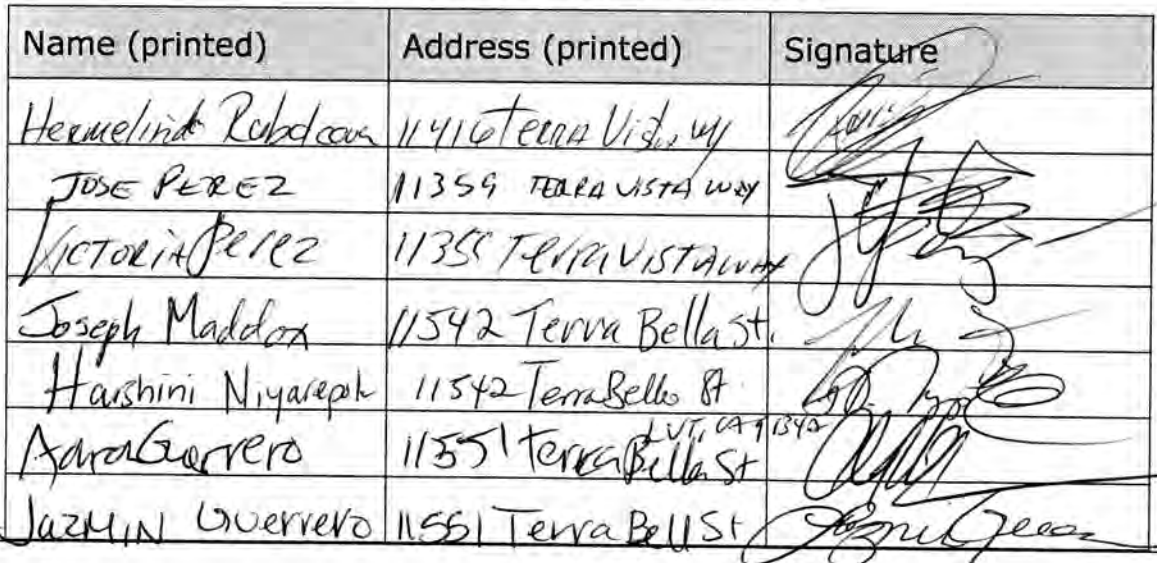 Name (printed) Address (printed) Signature
Hermelinda 11416 Terra Vista wy
JOSE PEREZ 11359 TERRA VISTA WAY
VICTORIA Perez 11359 Terra VISTA WAY
Joseph Maddox 11542 Terra Bella St.
Harshini 11542 Terra Bella St.
LVT, CA 91342
Guerrero 11551 Terra Bella St
JAZMIN Guerrero 11551 Terra Bell St